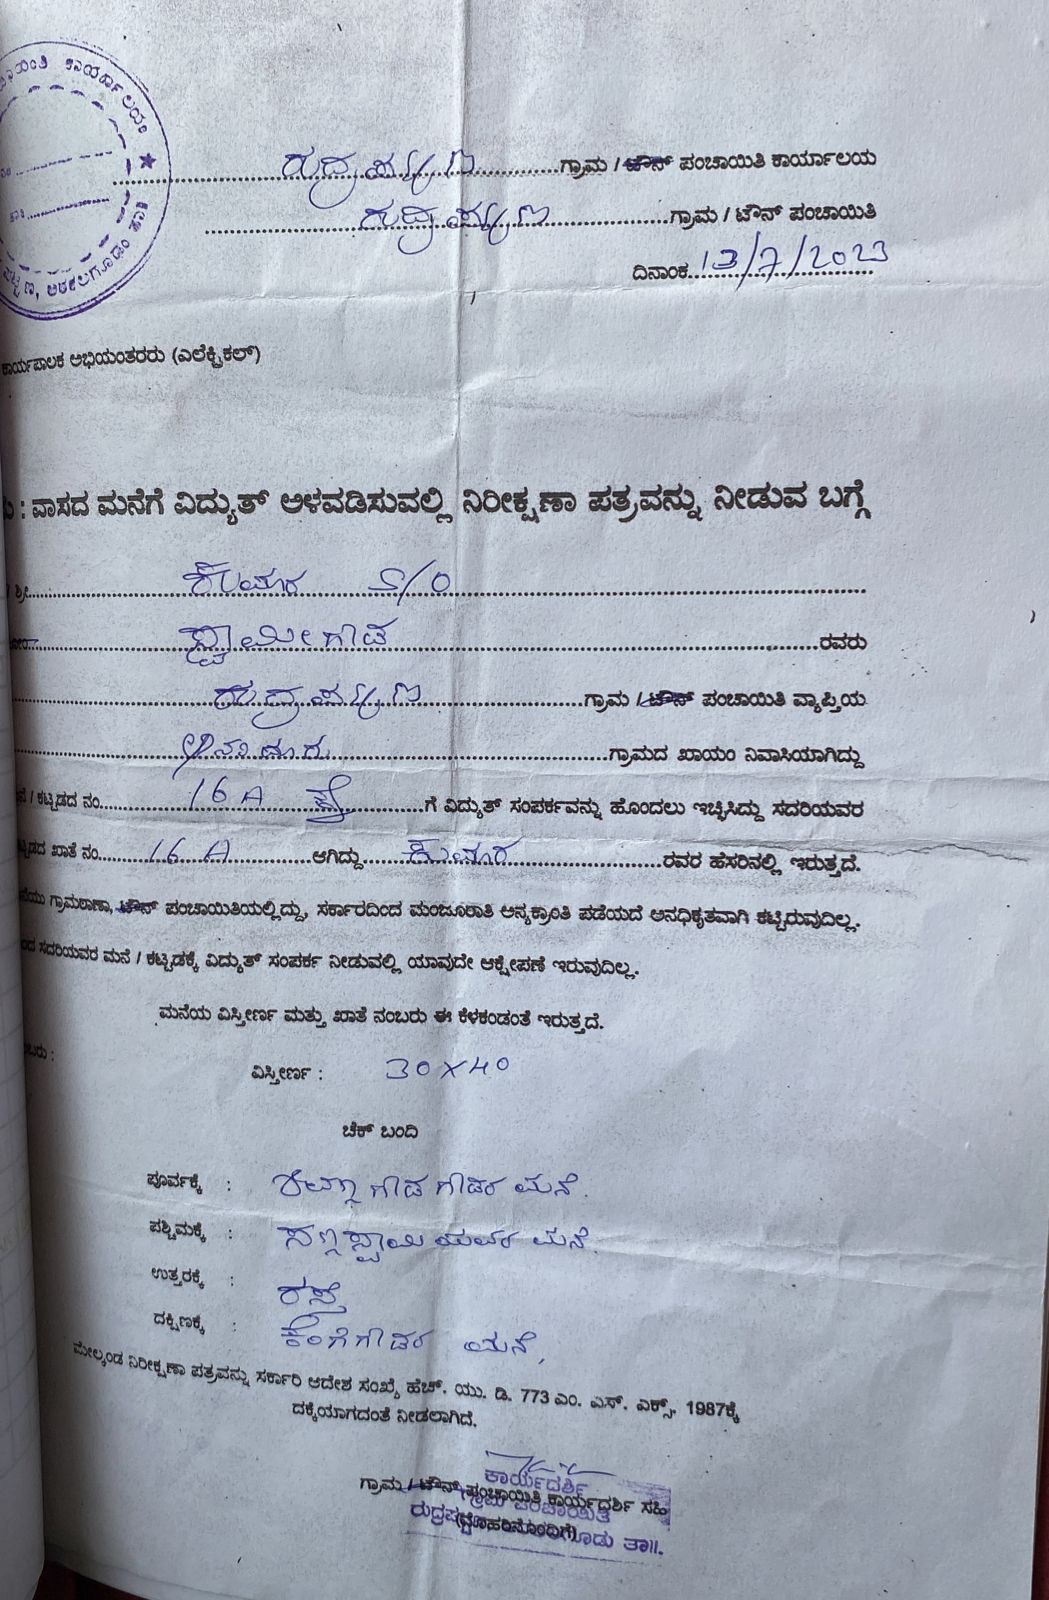 ಕಾರ್ಯಾಲಯ
ರುದ್ರಪಟ್ಟಣ ಗ್ರಾಮ / ಟೌನ್ ಪಂಚಾಯಿತಿ ಕಾರ್ಯಾಲಯ
ರುದ್ರಪಟ್ಟಣ ಗ್ರಾಮ / ಟೌನ್ ಪಂಚಾಯಿತಿ
ದಿನಾಂಕ 13/7/2023
ಕಾರ್ಯಪಾಲಕ ಅಭಿಯಂತರರು (ಎಲೆಕ್ಟ್ರಿಕಲ್)
: ವಾಸದ ಮನೆಗೆ ವಿದ್ಯುತ್ ಅಳವಡಿಸುವಲ್ಲಿ ನಿರೀಕ್ಷಣಾ ಪತ್ರವನ್ನು ನೀಡುವ ಬಗ್ಗೆ
ಶ್ರೀ ಕುಮಾರ S/O
ಸ್ವಾಮೀಗೌಡ ರವರು
ರುದ್ರಪಟ್ಟಣ ಗ್ರಾಮ / ಟೌನ್ ಪಂಚಾಯಿತಿ ವ್ಯಾಪ್ತಿಯ
ಗ್ರಾಮದ ಖಾಯಂ ನಿವಾಸಿಯಾಗಿದ್ದು
/ ಕಟ್ಟಡದ ನಂ. 16 A ಗೆ ವಿದ್ಯುತ್ ಸಂಪರ್ಕವನ್ನು ಹೊಂದಲು ಇಚ್ಛಿಸಿದ್ದು ಸದರಿಯವರ
ಖಾತೆ ನಂ. 16 A ಆಗಿದ್ದು ಕುಮಾರ ರವರ ಹೆಸರಿನಲ್ಲಿ ಇರುತ್ತದೆ.
ಗ್ರಾಮಠಾಣಾ, ಟೌನ್ ಪಂಚಾಯಿತಿಯಲ್ಲಿದ್ದು, ಸರ್ಕಾರದಿಂದ ಮಂಜೂರಾತಿ ಅನ್ಯಕ್ರಾಂತಿ ಪಡೆಯದೆ ಅನಧಿಕೃತವಾಗಿ ಕಟ್ಟಿರುವುದಿಲ್ಲ.
ಸದರಿಯವರ ಮನೆ / ಕಟ್ಟಡಕ್ಕೆ ವಿದ್ಯುತ್ ಸಂಪರ್ಕ ನೀಡುವಲ್ಲಿ ಯಾವುದೇ ಆಕ್ಷೇಪಣೆ ಇರುವುದಿಲ್ಲ.
ಮನೆಯ ವಿಸ್ತೀರ್ಣ ಮತ್ತು ಖಾತೆ ನಂಬರು ಈ ಕೆಳಕಂಡಂತೆ ಇರುತ್ತದೆ.
ವಿಸ್ತೀರ್ಣ : 30X40
ಚೆಕ್ ಬಂದಿ
ಪೂರ್ವಕ್ಕೆ : ಗೌಡರ ಮನೆ.
ಪಶ್ಚಿಮಕ್ಕೆ : ಸಣ್ಣಸ್ವಾಮಿಯವರ ಮನೆ.
ಉತ್ತರಕ್ಕೆ : ರಸ್ತೆ
ದಕ್ಷಿಣಕ್ಕೆ : ಕೆಂಗೆಗೌಡರ ಮನೆ,
ಮೇಲ್ಕಂಡ ನಿರೀಕ್ಷಣಾ ಪತ್ರವನ್ನು ಸರ್ಕಾರಿ ಆದೇಶ ಸಂಖ್ಯೆ ಹೆಚ್. ಯು. ಡಿ. 773 ಎಂ. ಎಸ್. ಎಕ್ಸ್. 1987ಕ್ಕೆ
ದಕ್ಕೆಯಾಗದಂತೆ ನೀಡಲಾಗಿದೆ.
ಕಾರ್ಯದರ್ಶಿ
ಗ್ರಾಮ / ಟೌನ್ ಪಂಚಾಯಿತಿ ಕಾರ್ಯದರ್ಶಿ ಸಹಿ
(ಮೊಹರಿನೊಂದಿಗೆ)